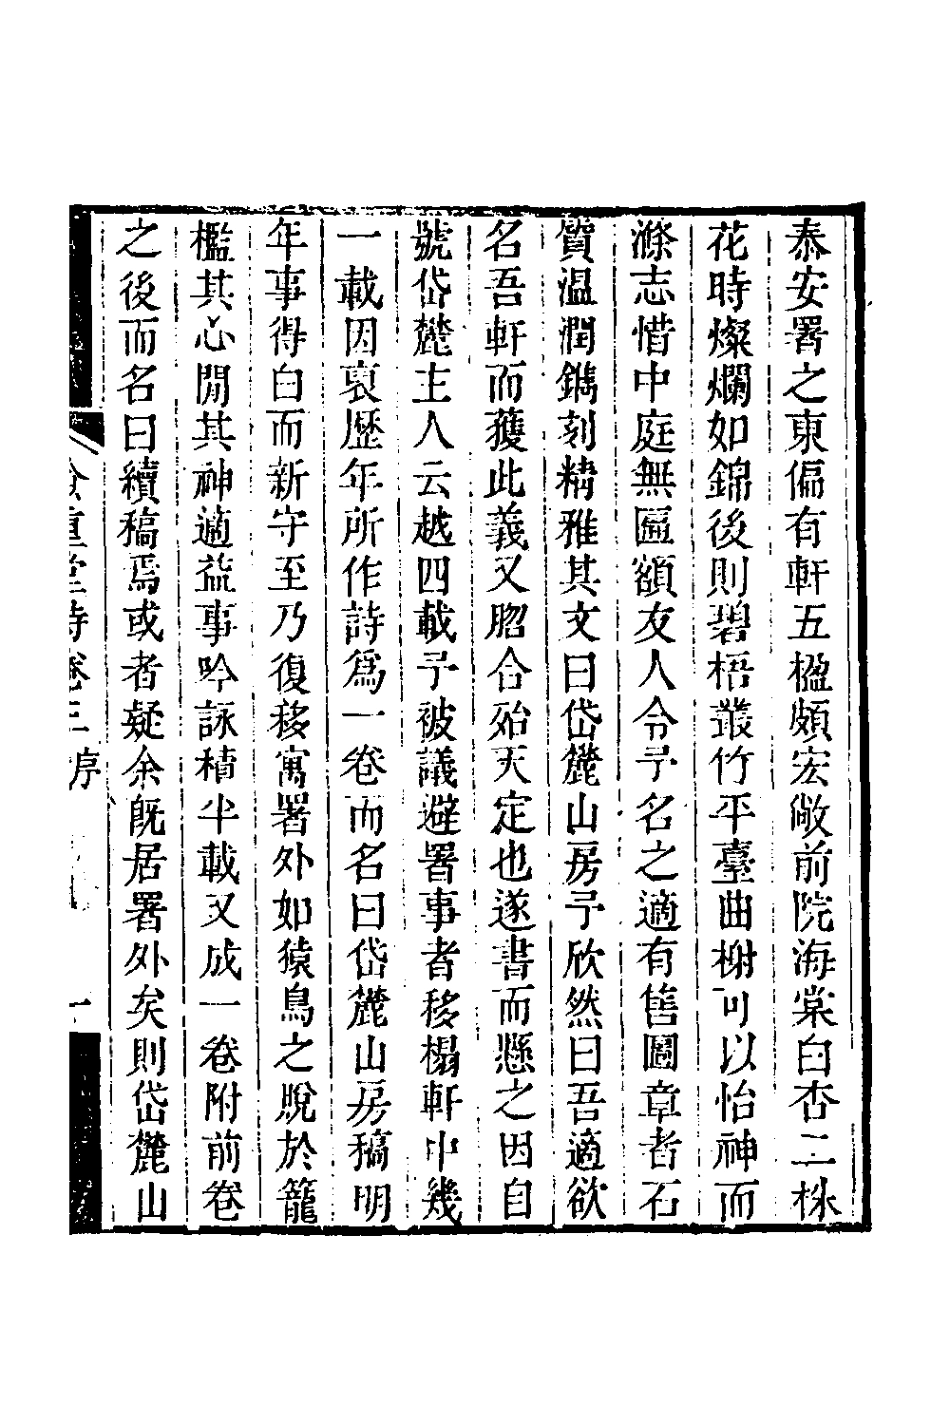 泰安署之東偏有軒五楹頗宏敞前院海棠白杏二株
花時燦爛如錦後則碧梧叢竹平臺曲榭可以怡神而
滌志惜中庭無匾額友人令予名之適有售圖章者石
質温潤鐫刻精雅其文曰岱麓山房予欣然曰吾適欲
名吾軒而獲此義又脗合殆天定也遂書而懸之因自
號岱麓主人云越四載予被議避署事者移榻軒中幾
一載因裒歷年所作詩爲一卷而名曰岱麓山房稿明
年事得白而新守至乃復移寓署外如猿鳥之脫於籠
檻其心閒其神適益事吟詠積半載又成一卷附前卷
之後而名曰續稿焉或者疑余既居署外矣則岱麓山
重堂詩卷三 序 一